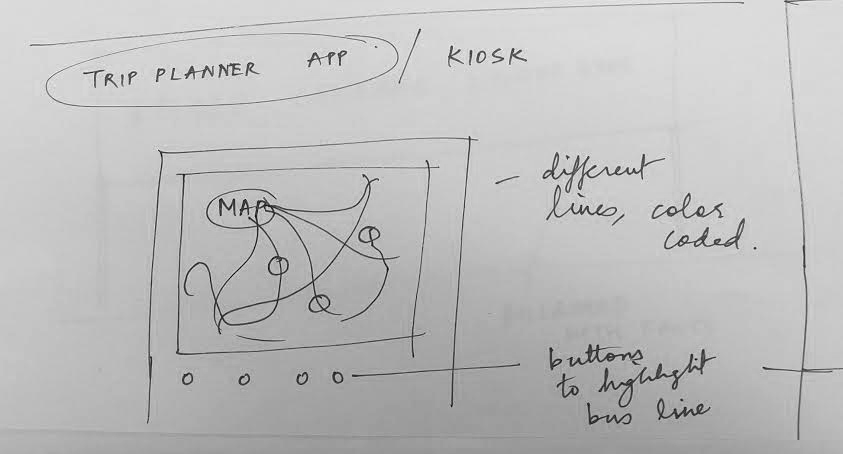 TRIP PLANNER APP / KIOSK
MAP
- different
lines, color
coded.
buttons
to highlight
bus line